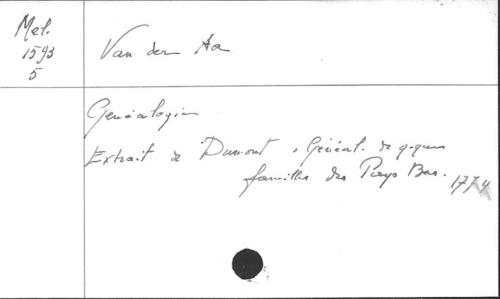 Mel.
1593
5
Van der Aa
Généalogie
Extrait de Dumont, Généal. de qques
familles des Pays Bas. 1774